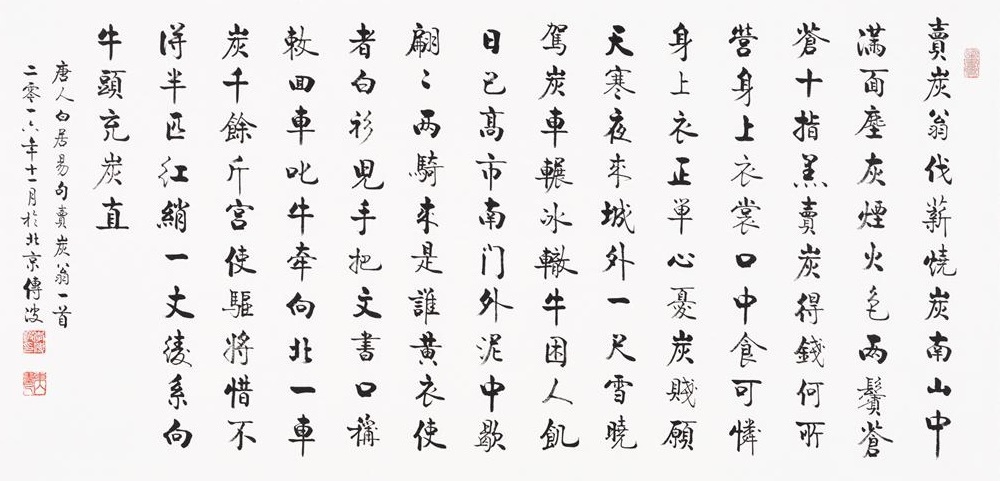 賣炭翁伐薪燒炭南山中
滿面塵灰煙火色两鬢蒼
蒼十指黑賣炭得錢何所
營身上衣裳口中食可憐
身上衣正単心憂炭賤願
天寒夜来城外一尺雪曉
駕炭車輾冰轍牛困人飢
日已高市南门外泥中歇
翩〻两騎来是誰黄衣使
者白衫兒手把文書口稱
敕回車叱牛牽向北一車
炭千餘斤宮使驅將惜不
得半匹红綃一丈綾系向
牛頭充炭直
唐人白居易句賣炭翁一首
二零一六年十一月於北京傳波